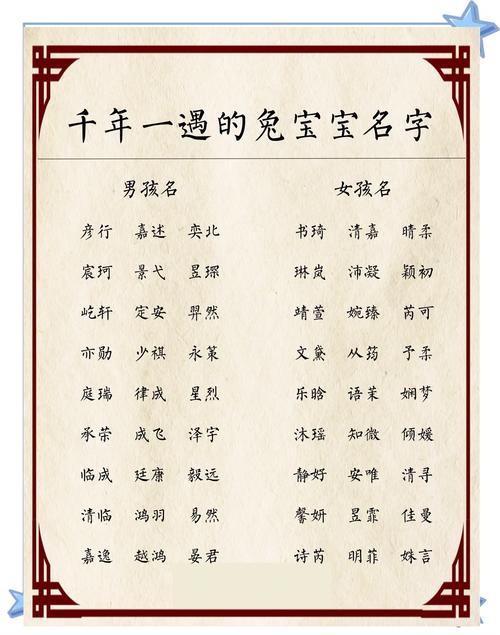 千年一遇的兔宝宝名字
男孩名 女孩名
彦行 嘉述 奕北 书琦 清嘉 晴柔
宸珂 景弋 昱琛 琳岚 沛凝 颖初
屹轩 定安 羿然 靖萱 婉臻 芮可
亦勋 少祺 永策 文黛 从筠 予柔
庭瑞 律成 星烈 乐晗 语茉 娴梦
承荣 成飞 泽宇 沐瑶 知微 倾媛
临成 廷康 毅远 静好 安唯 清寻
清临 鸿羽 易然 馨妍 昱霏 佳曼
嘉逸 越鸿 晏君 诗芮 明菲 姝言